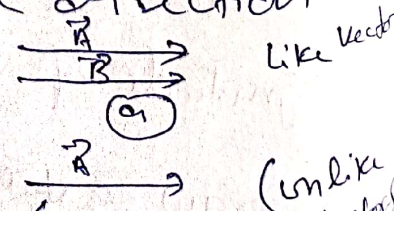 A⃗ like vector
B⃗
a
A⃗ (unlike